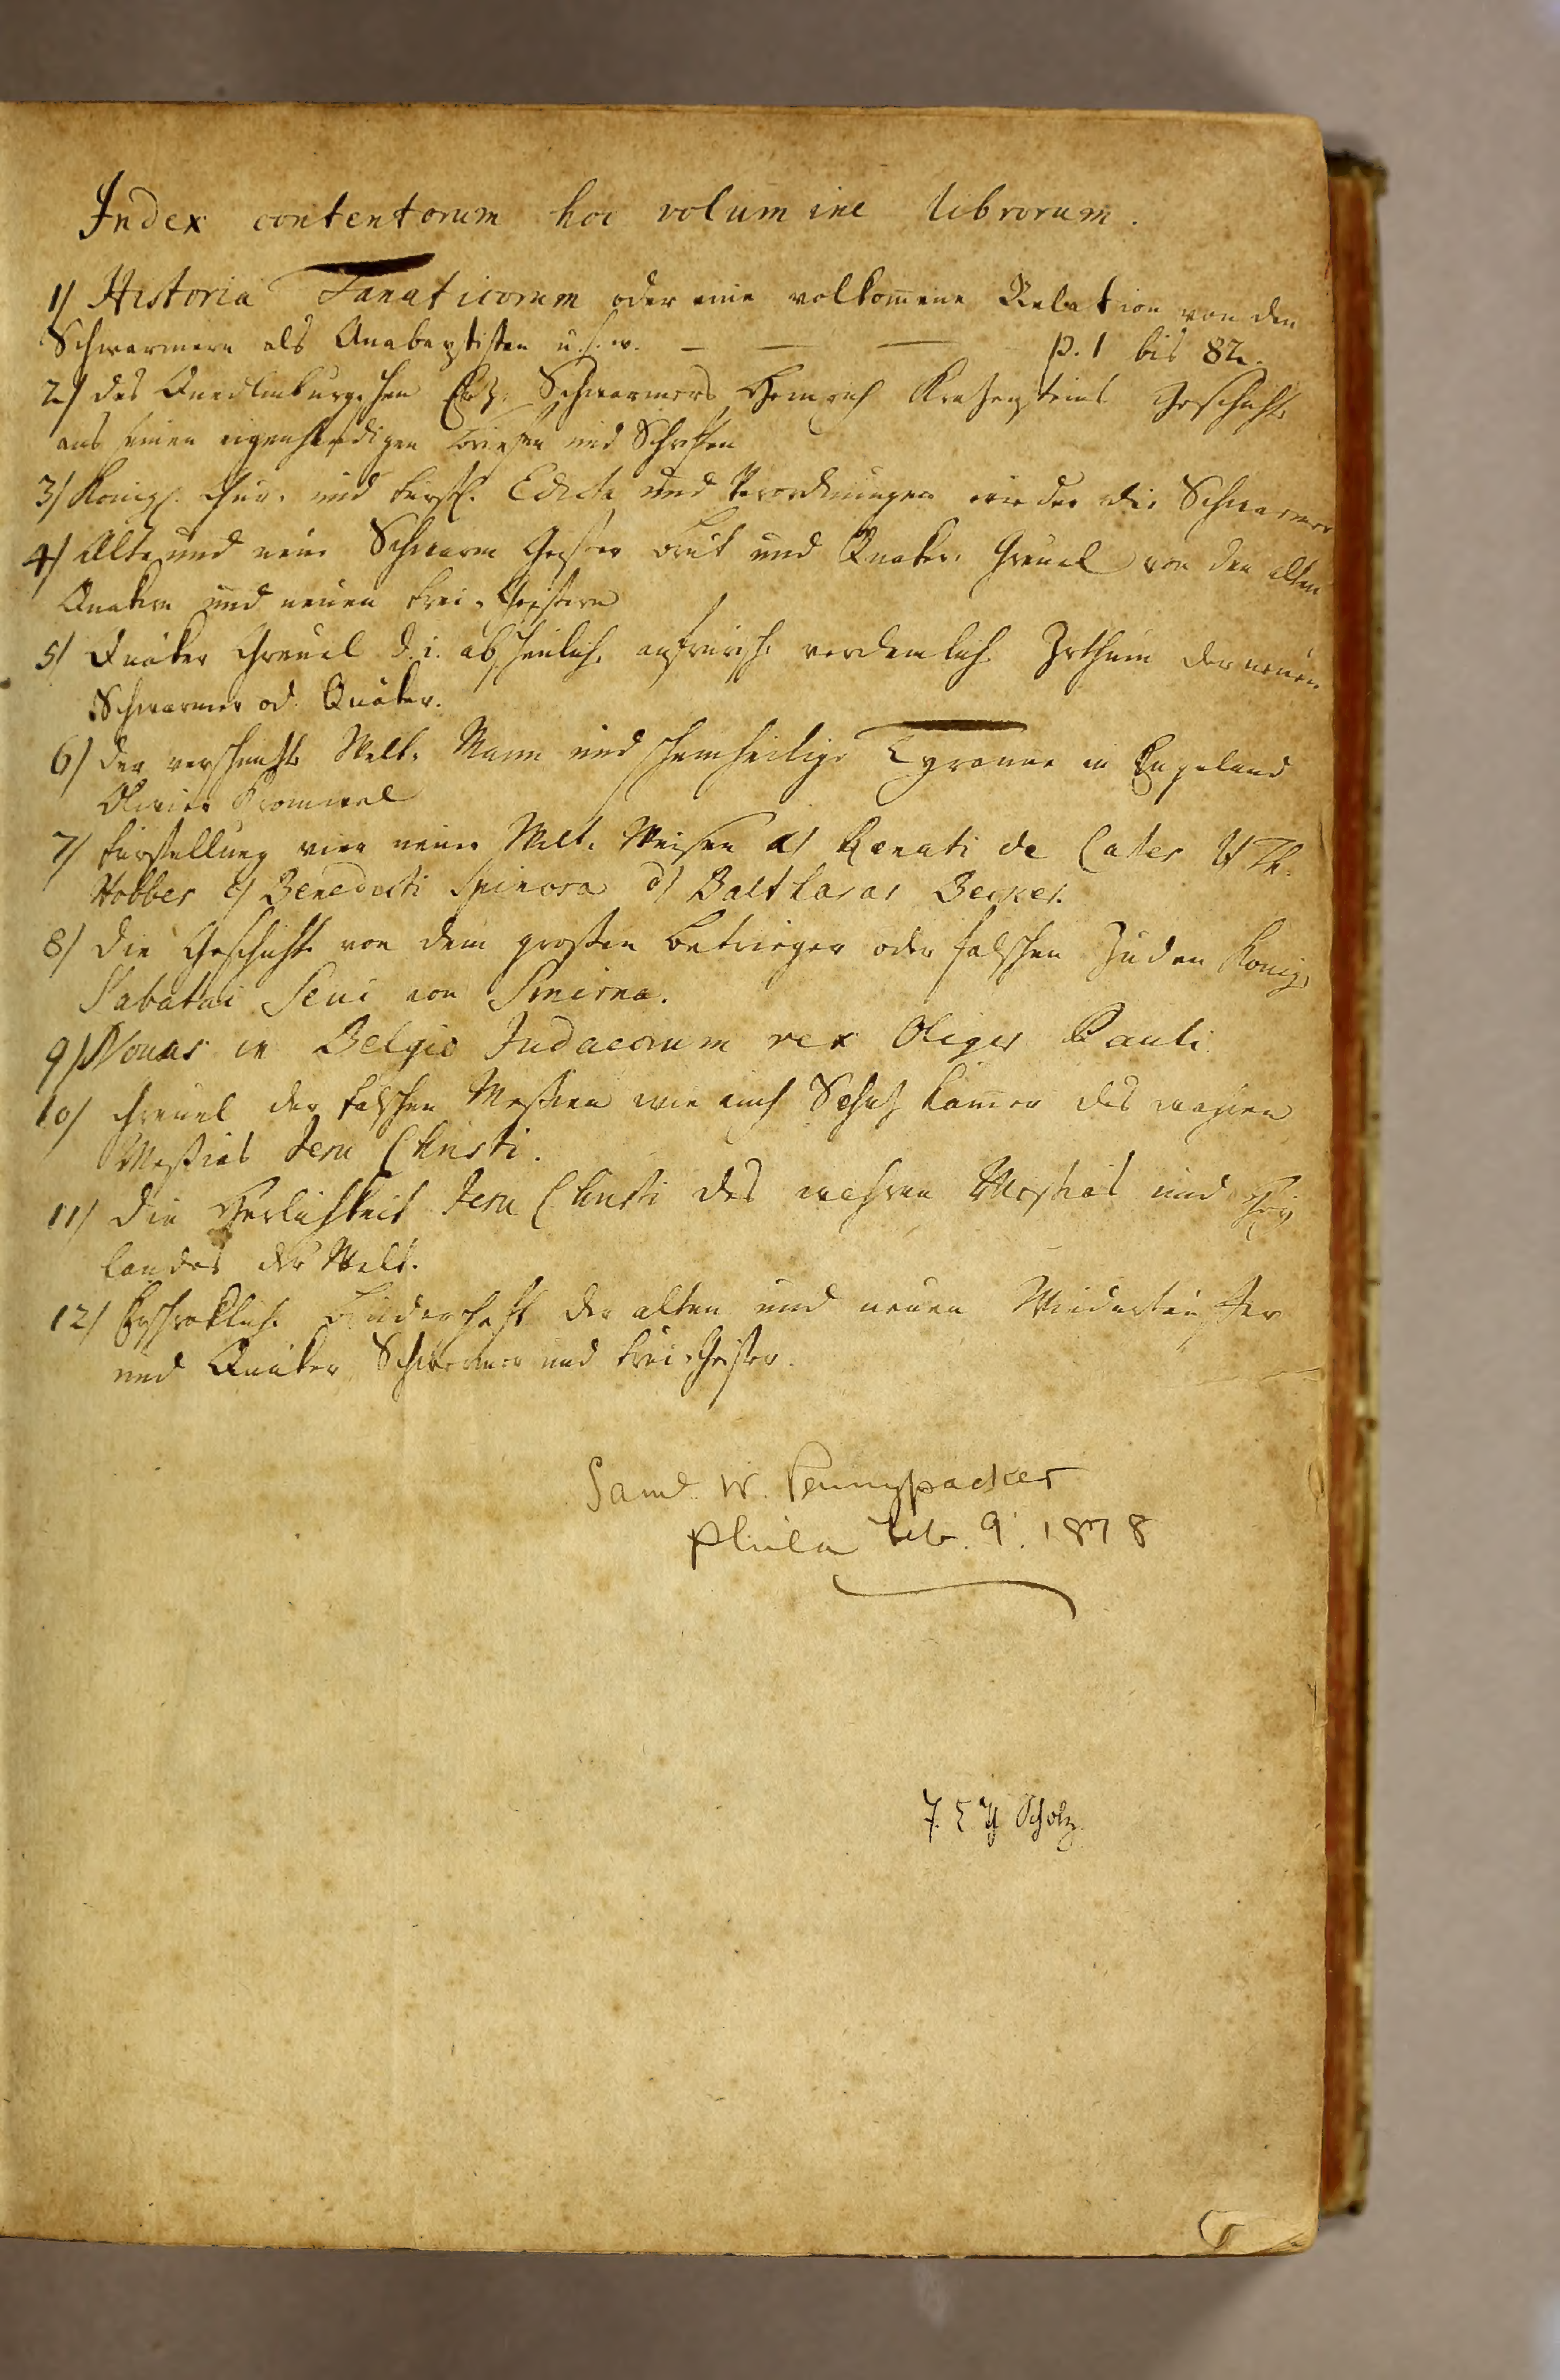 Index contentorum hoc volumine librorum.
1/ Historia Fanaticorum oder eine volkom̄ene Relation von den
Schwarmern als Anabaptisten u. s. w. — — — p. 1 bis 82.
2/ des Quedlinburgschen Erz Schwarmers Heinrich Kratzensteins Geschichte
aus seinen eigenhändigen Briefen und Schriften
3/ Königl. Chur. und Fürstl. Edicte und Verordnungen wieder die Schwarmer
4/ Alte und neue Schwarm Geister Brut und Quaker Greuel von den alten
Quakern und neuen Frei-Geistern
5/ Quäker Greuel d. i. abscheulich aufrürisch verdamlich Irthum der neuen
Schwarmer od. Quäker.
6/ der verschmizte Welt-Mann und scheinheilige Tyranne in Engeland
Olivier Cromwel
7/ Fürstellung vier neuer Welt-Weisen a/ Renati de Cartes b/ Th.
Hobbes c/ Benedicti Spinosa d/ Balthasar Becker.
8/ die Geschicht von dem großen Betrieger oder falschen Juden König
Sabatai Sevi von Smirna.
9/ Novus in Belgio Judaeorum rex Oliger Pauli
10/ Greuel der falschen Meßien wie auch Schatz Kam̄er des wahren
Meßias Jesu Christi.
11/ die Herlichkeit Jesu Christi des wahren Meßias und Hei
landes der Welt.
12/ Erschrökliche Brüderschaft der alten und neuen Wiedertäuffer
und Quäker Schwermer und Frei-Geister.
Saml. W. Pennypacker
Phila Feb. 9. 1878
Scholz